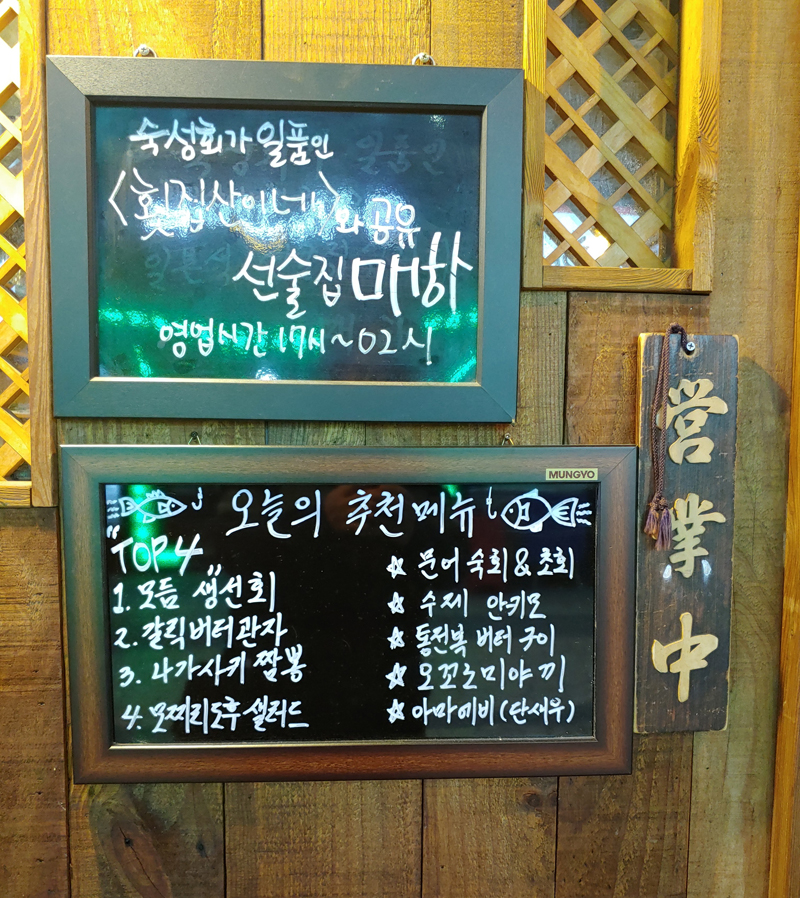 숙성회가 일품인
<횟집산이네>와 공유
선술집 마하
영업시간 17시~02시
MUNGYO
오늘의 추천메뉴
"TOP 4"
1. 모듬 생선회
2. 갈릭버터관자
3. 나가사키 짬뽕
4. 모찌리도후 샐러드
☆ 문어숙회&초회
☆ 수제 안키모
☆ 통전복 버터구이
☆ 오꼬노미야끼
☆ 아마에비(단새우)
営業中